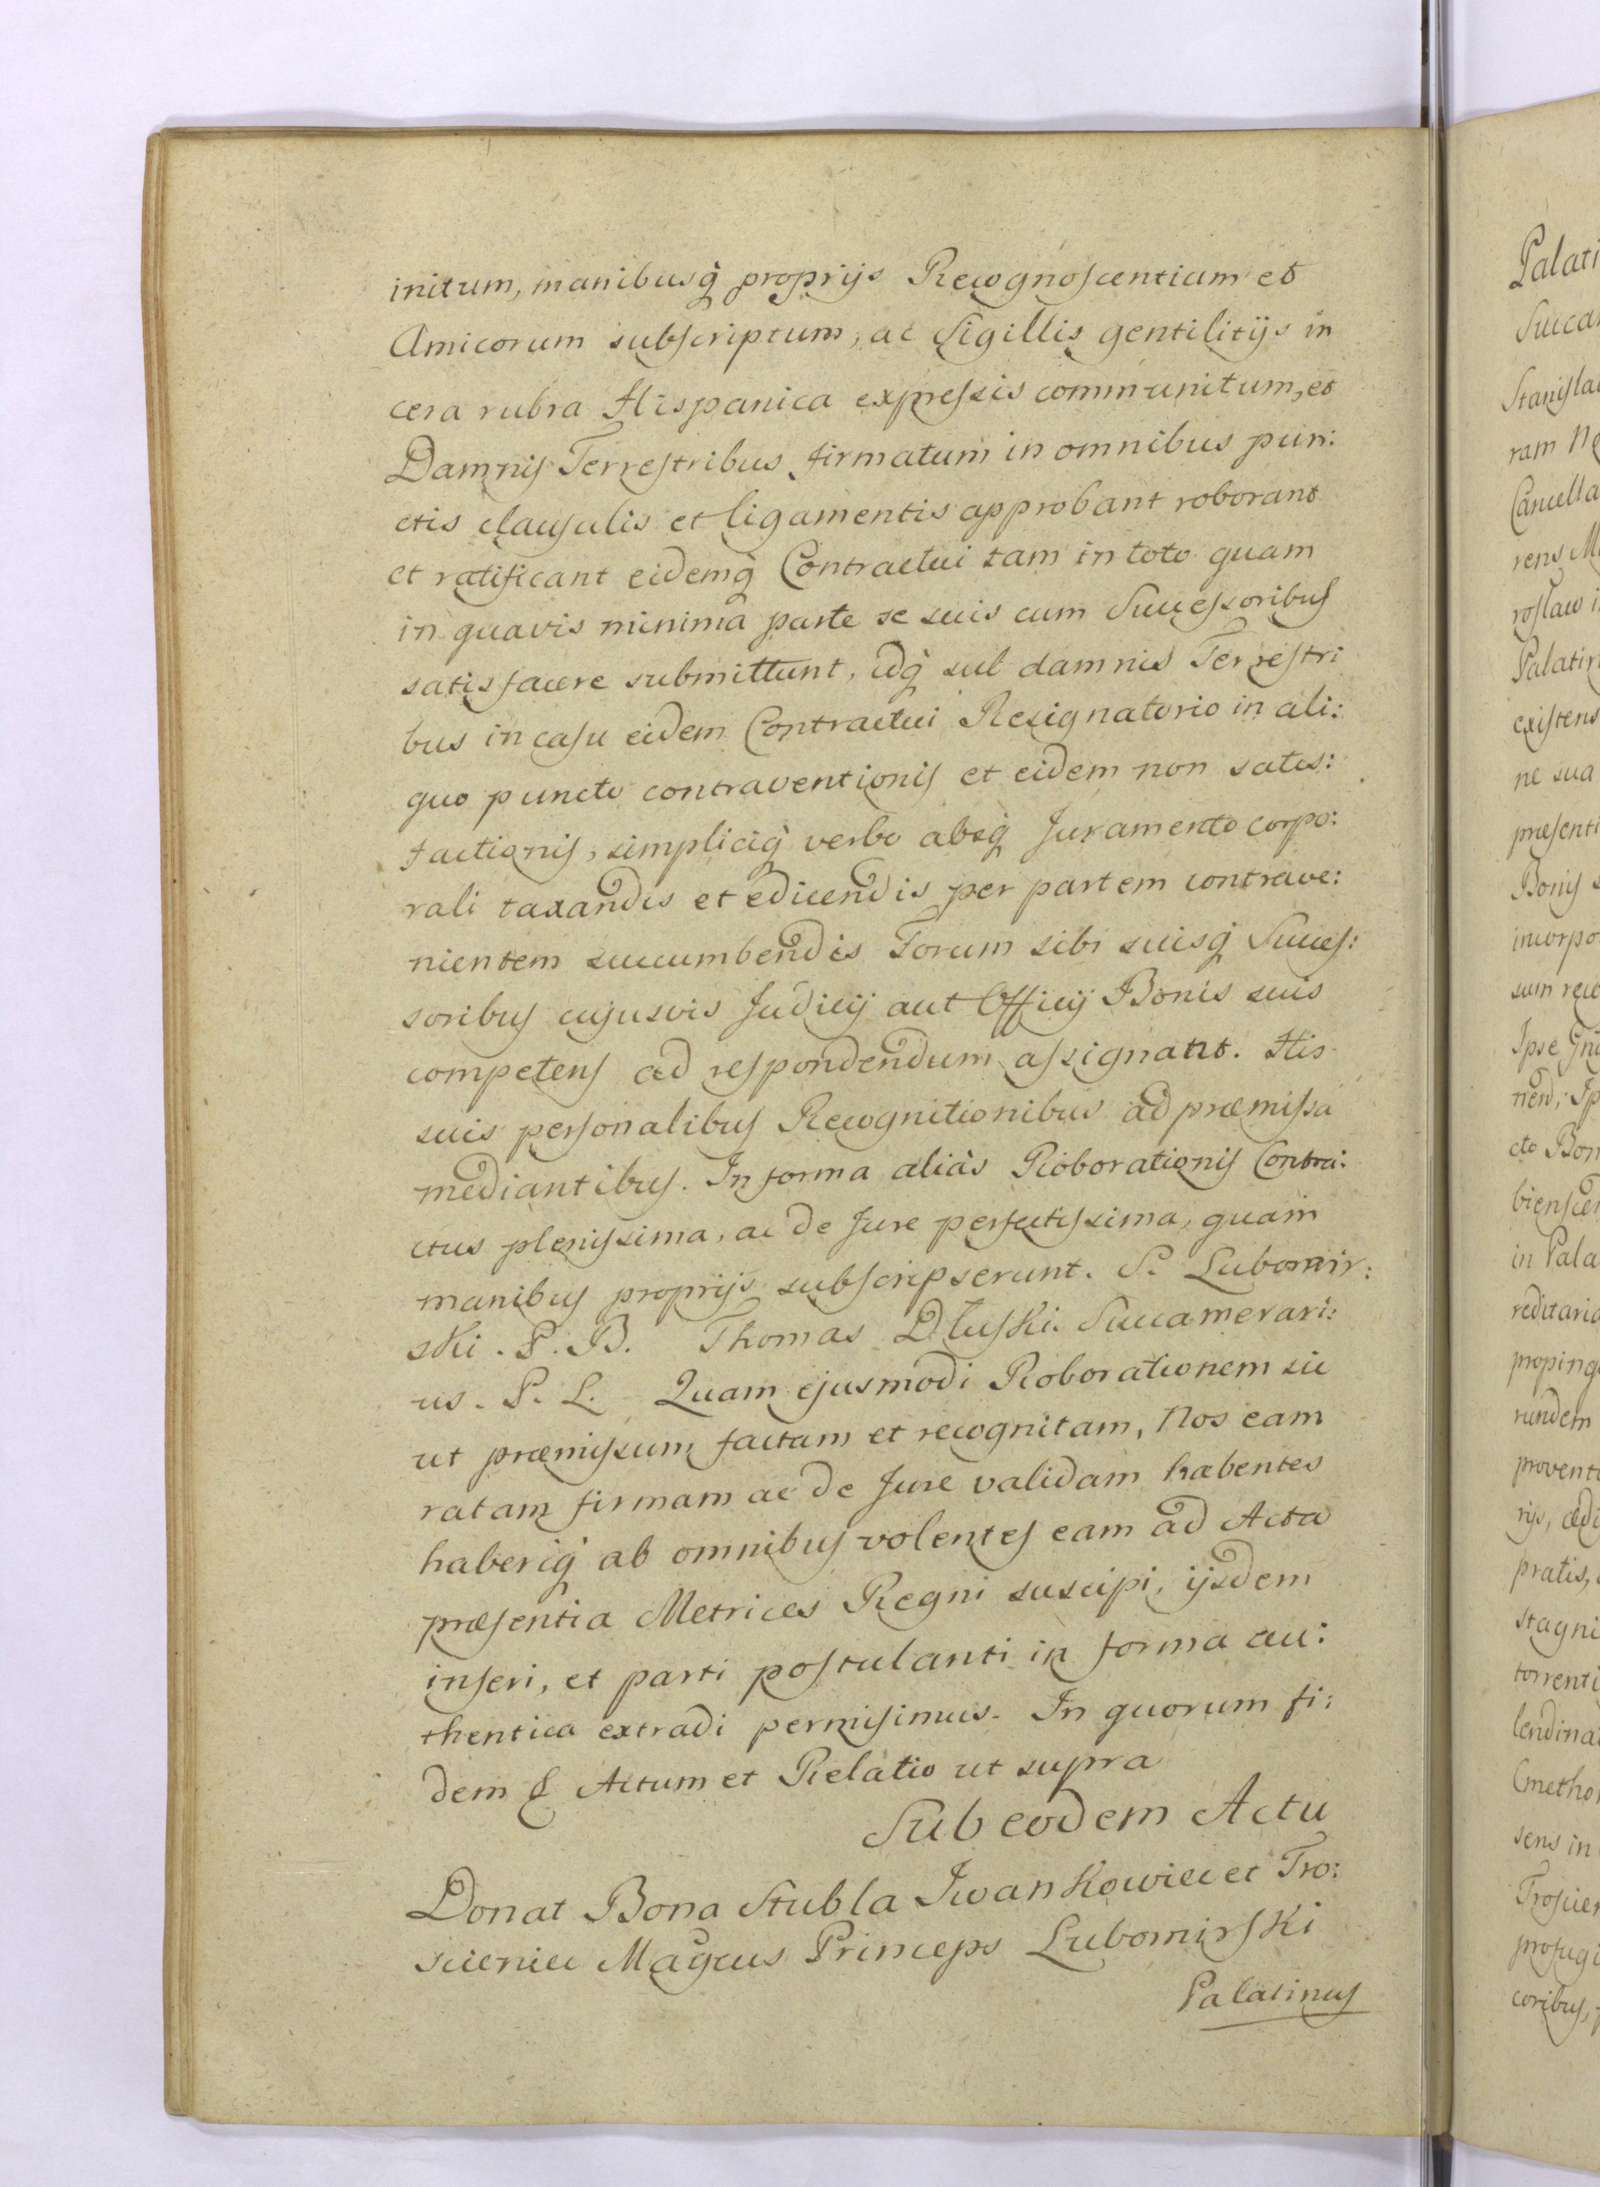 initum, manibusq̀ proprijs Recognoscentium et
Amicorum subscriptum, ac Sigillis gentilitijs in
cera rubra Hispanica expressis communitum, et
Damnis Terrestribus firmatum in omnibus pun:
ctis clausulis et ligamentis approbant roborant
et ratificant eidemq̀ Contractui tam in toto quam
in quavis minima parte se suis cum Successoribus
satisfacere submittunt, idq̀ sub damnis Terrestri
bus in casu eidem Contractui Resignatorio in ali:
quo puncto contraventionis et eidem non satis:
factionis, simpliciq̀ verbo absq̀ Juramento corpo:
rali taxandis et edicendis per partem contrave:
nientem succumbendis Forum sibi suisq̀ Succes:
soribus cujusvis Judicij aut Officij Bonis suis
competens ad respondendum assignant. His
suis personalibus Recognitionibus ad præmissa
mediantibus. In forma aliàs Roborationis Contra:
ctus plenissima, ac de Jure perfectissima, quam
manibus proprijs subscripserunt. S. Lubomir:
ski. P. B. Thomas Dłuski Succamerari:
us. P. L. Quam ejusmodi Roborationem sic
ut præmissum factam et recognitam, Nos eam
ratam firmam ac de Jure validam habentes
haberiq̀ ab omnibus volentes eam ad Acta
præsentia Metrices Regni suscipi, ijsdem
inseri, et parti postulanti in forma au:
thentica extradi permisimus. In quorum fi:
dem & Actum et Relatio ut supra
Sub eodem Actu
Donat Bona Stubla Iwankowice et Tro:
scieniec Magcus Princeps Lubomirski
Palatinus
Palati
Succa
Stanisla
ram
Cancella
rens
roslaw
Palatin
existens
ne sua
præsenti
Bonis
incorpo
sum reco
Ipse
nend,
cto Bon
in Pala
reditaria
propinq
rundem
provent
rijs, ædi
pratis,
stagni
torrenti
lendina
Cmetho
sens in
Troscien
profugi
coribus,